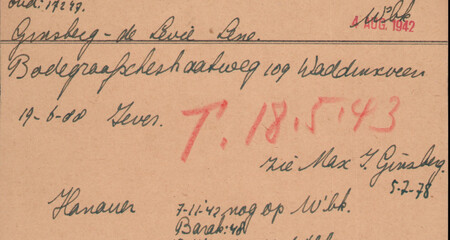 oud: 17249.
W'bk
4 AUG. 1942
Ginsberg - de Levie Lene.
Bodegraafschestraatweg 109 Waddinxveen
19-6-80 Jever.
T. 18.5.43
zie Max J. Ginsberg.
5-2-78
Hanauer
7-11-42 nog op W'bk.
Barak: 48